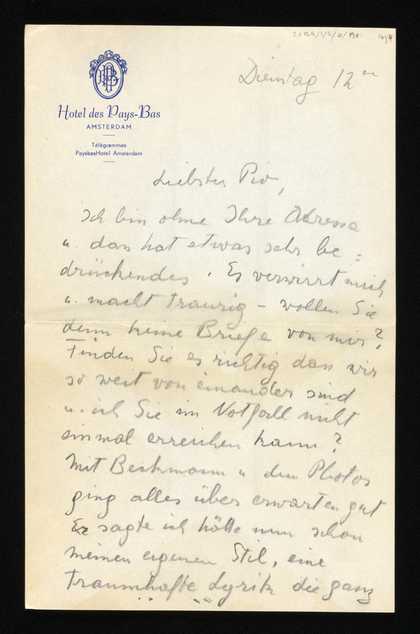 Dienstag 12
Hotel des Pays-Bas
AMSTERDAM
Télégrammes
PaysbasHotel Amsterdam
Liebster Pio,
Ich bin ohne Ihre Adresse
u. das hat etwas sehr be=
drückendes. Es verwirrt mich
u. macht traurig – wollen Sie
denn keine Briefe von mir?
Finden Sie es richtig dass wir
so weit von einander sind
u. ich Sie im Notfall nicht
einmal erreichen kann?
Mit Beckmann u den Photos
ging alles über erwarten gut
Er sagte ich hätte nun schon
meinen eigenen Stil, eine
traumhafte Lyrik die ganz